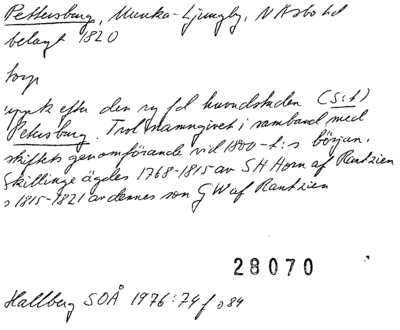 Pettersburg, Munka-Ljungby, N Åsbo hd
belagt 1820
torp
uppk efter den ry fd huvudstaden (S:t)
Petersburg. Trol namngivet i samband med
skiftets genomförande vid 1800-t:s början.
Skillinge ägdes 1768-1815 av SH Horn af Rantzien
o 1815-1821 av dennes son GW af Rantzien
28070
Hallberg SOÅ 1976:74 f o 84